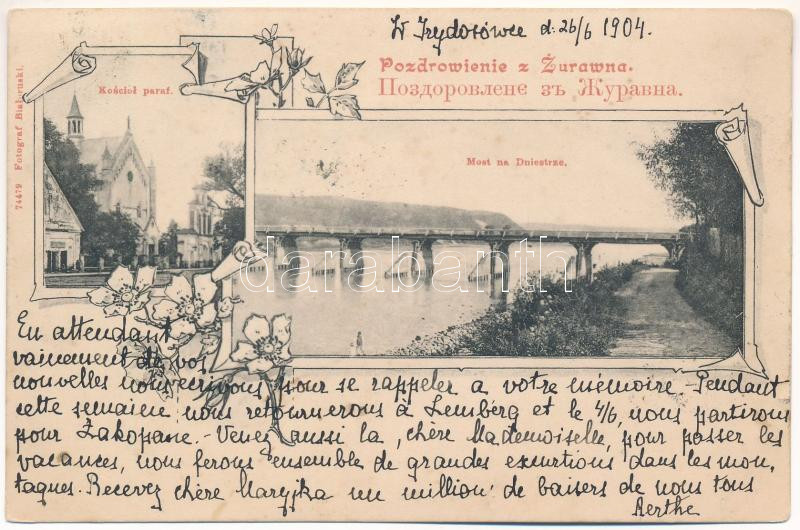 W Izydorówce d. 26/6 1904.
Pozdrowienie z Żurawna.
Поздоровленє зъ Журавна.
Kościół paraf.
Most na Dniestrze.
74479 Fotograf Białoruski.
darabanth
En attendant
vainement de vos
nouvelles nous ecrivons pour se rappeler a votre mémoire - Pendant
sette semaine nous retournerons à Lemberg et le 4/6, nous partirons
pour Zakopane. - Venez aussi la, chère Mademoiselle, pour passer les
vacances, nous ferons ensemble de grandes excurtions dans les mon,
tagues. Recevez chère Maryska un million de baisers de nous tous
Berthe